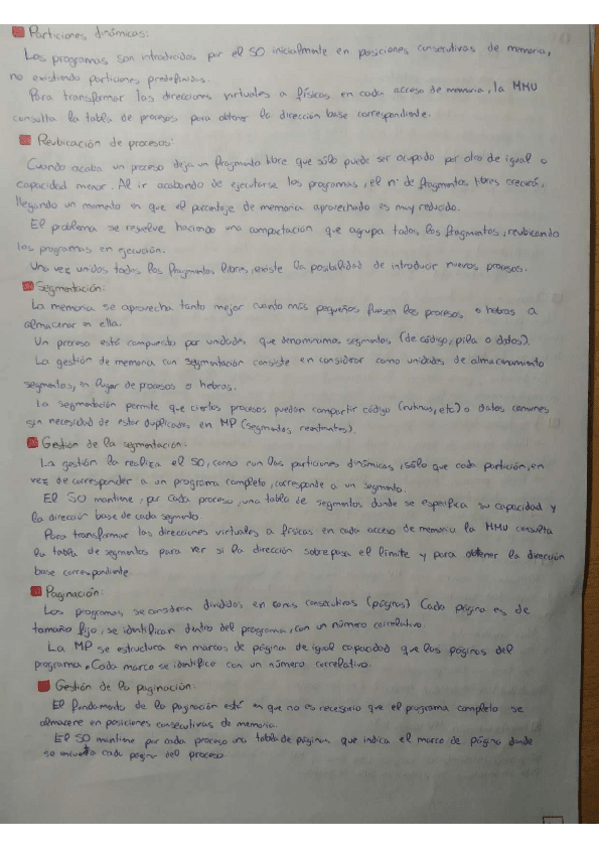 Particiones dinámicas:
Los programas son introducidos por el SO inicialmente en posiciones consecutivas de memoria,
no existiendo particiones predefinidas.
Para transformar las direcciones virtuales a físicas en cada acceso de memoria, la MMU
consulta la tabla de procesos para obtener la dirección base correspondiente.
Reubicación de procesos:
Cuando acaba un proceso deja un fragmento libre que sólo puede ser ocupado por otro de igual o
capacidad menor. Al ir acabando de ejecutarse los programas, el nº de fragmentos libres crecerá,
llegando un momento en que el porcentaje de memoria aprovechado es muy reducido.
El problema se resuelve haciendo una compactación que agrupa todos los fragmentos, reubicando
los programas en ejecución.
Una vez unidos todos los fragmentos libres, existe la posibilidad de introducir nuevos procesos.
Segmentación:
La memoria se aprovecha tanto mejor cuanto más pequeños fuesen los procesos, o hebras a
almacenar en ella.
Un proceso está compuesto por unidades que denominamos segmentos (de código, pila o datos).
La gestión de memoria con segmentación consiste en considerar como unidades de almacenamiento
segmentos, en lugar de procesos o hebras.
La segmentación permite que ciertos procesos puedan compartir código (rutinas, etc) o datos comunes
sin necesidad de estar duplicados en MP (segmentos reentrantes).
Gestión de la segmentación:
La gestión la realiza el SO, como con las particiones dinámicas, sólo que cada partición, en
vez de corresponder a un programa completo, corresponde a un segmento.
El SO mantiene, por cada proceso, una tabla de segmentos donde se especifica su capacidad y
la dirección base de cada segmento.
Para transformar las direcciones virtuales a físicas en cada acceso de memoria la MMU consulta
la tabla de segmentos para ver si la dirección sobrepasa el límite y para obtener la dirección
base correspondiente.
Paginación:
Los programas se consideran divididos en zonas consecutivas (páginas) Cada página es de
tamaño fijo, se identifican dentro del programa, con un número correlativo.
La MP se estructura en marcos de página de igual capacidad que las páginas del
programa. Cada marco se identifica con un número correlativo.
Gestión de la paginación:
El fundamento de la paginación está en que no es necesario que el programa completo se
almacene en posiciones consecutivas de memoria.
El SO mantiene por cada proceso una tabla de páginas que indica el marco de página donde
se encuentra cada página del proceso